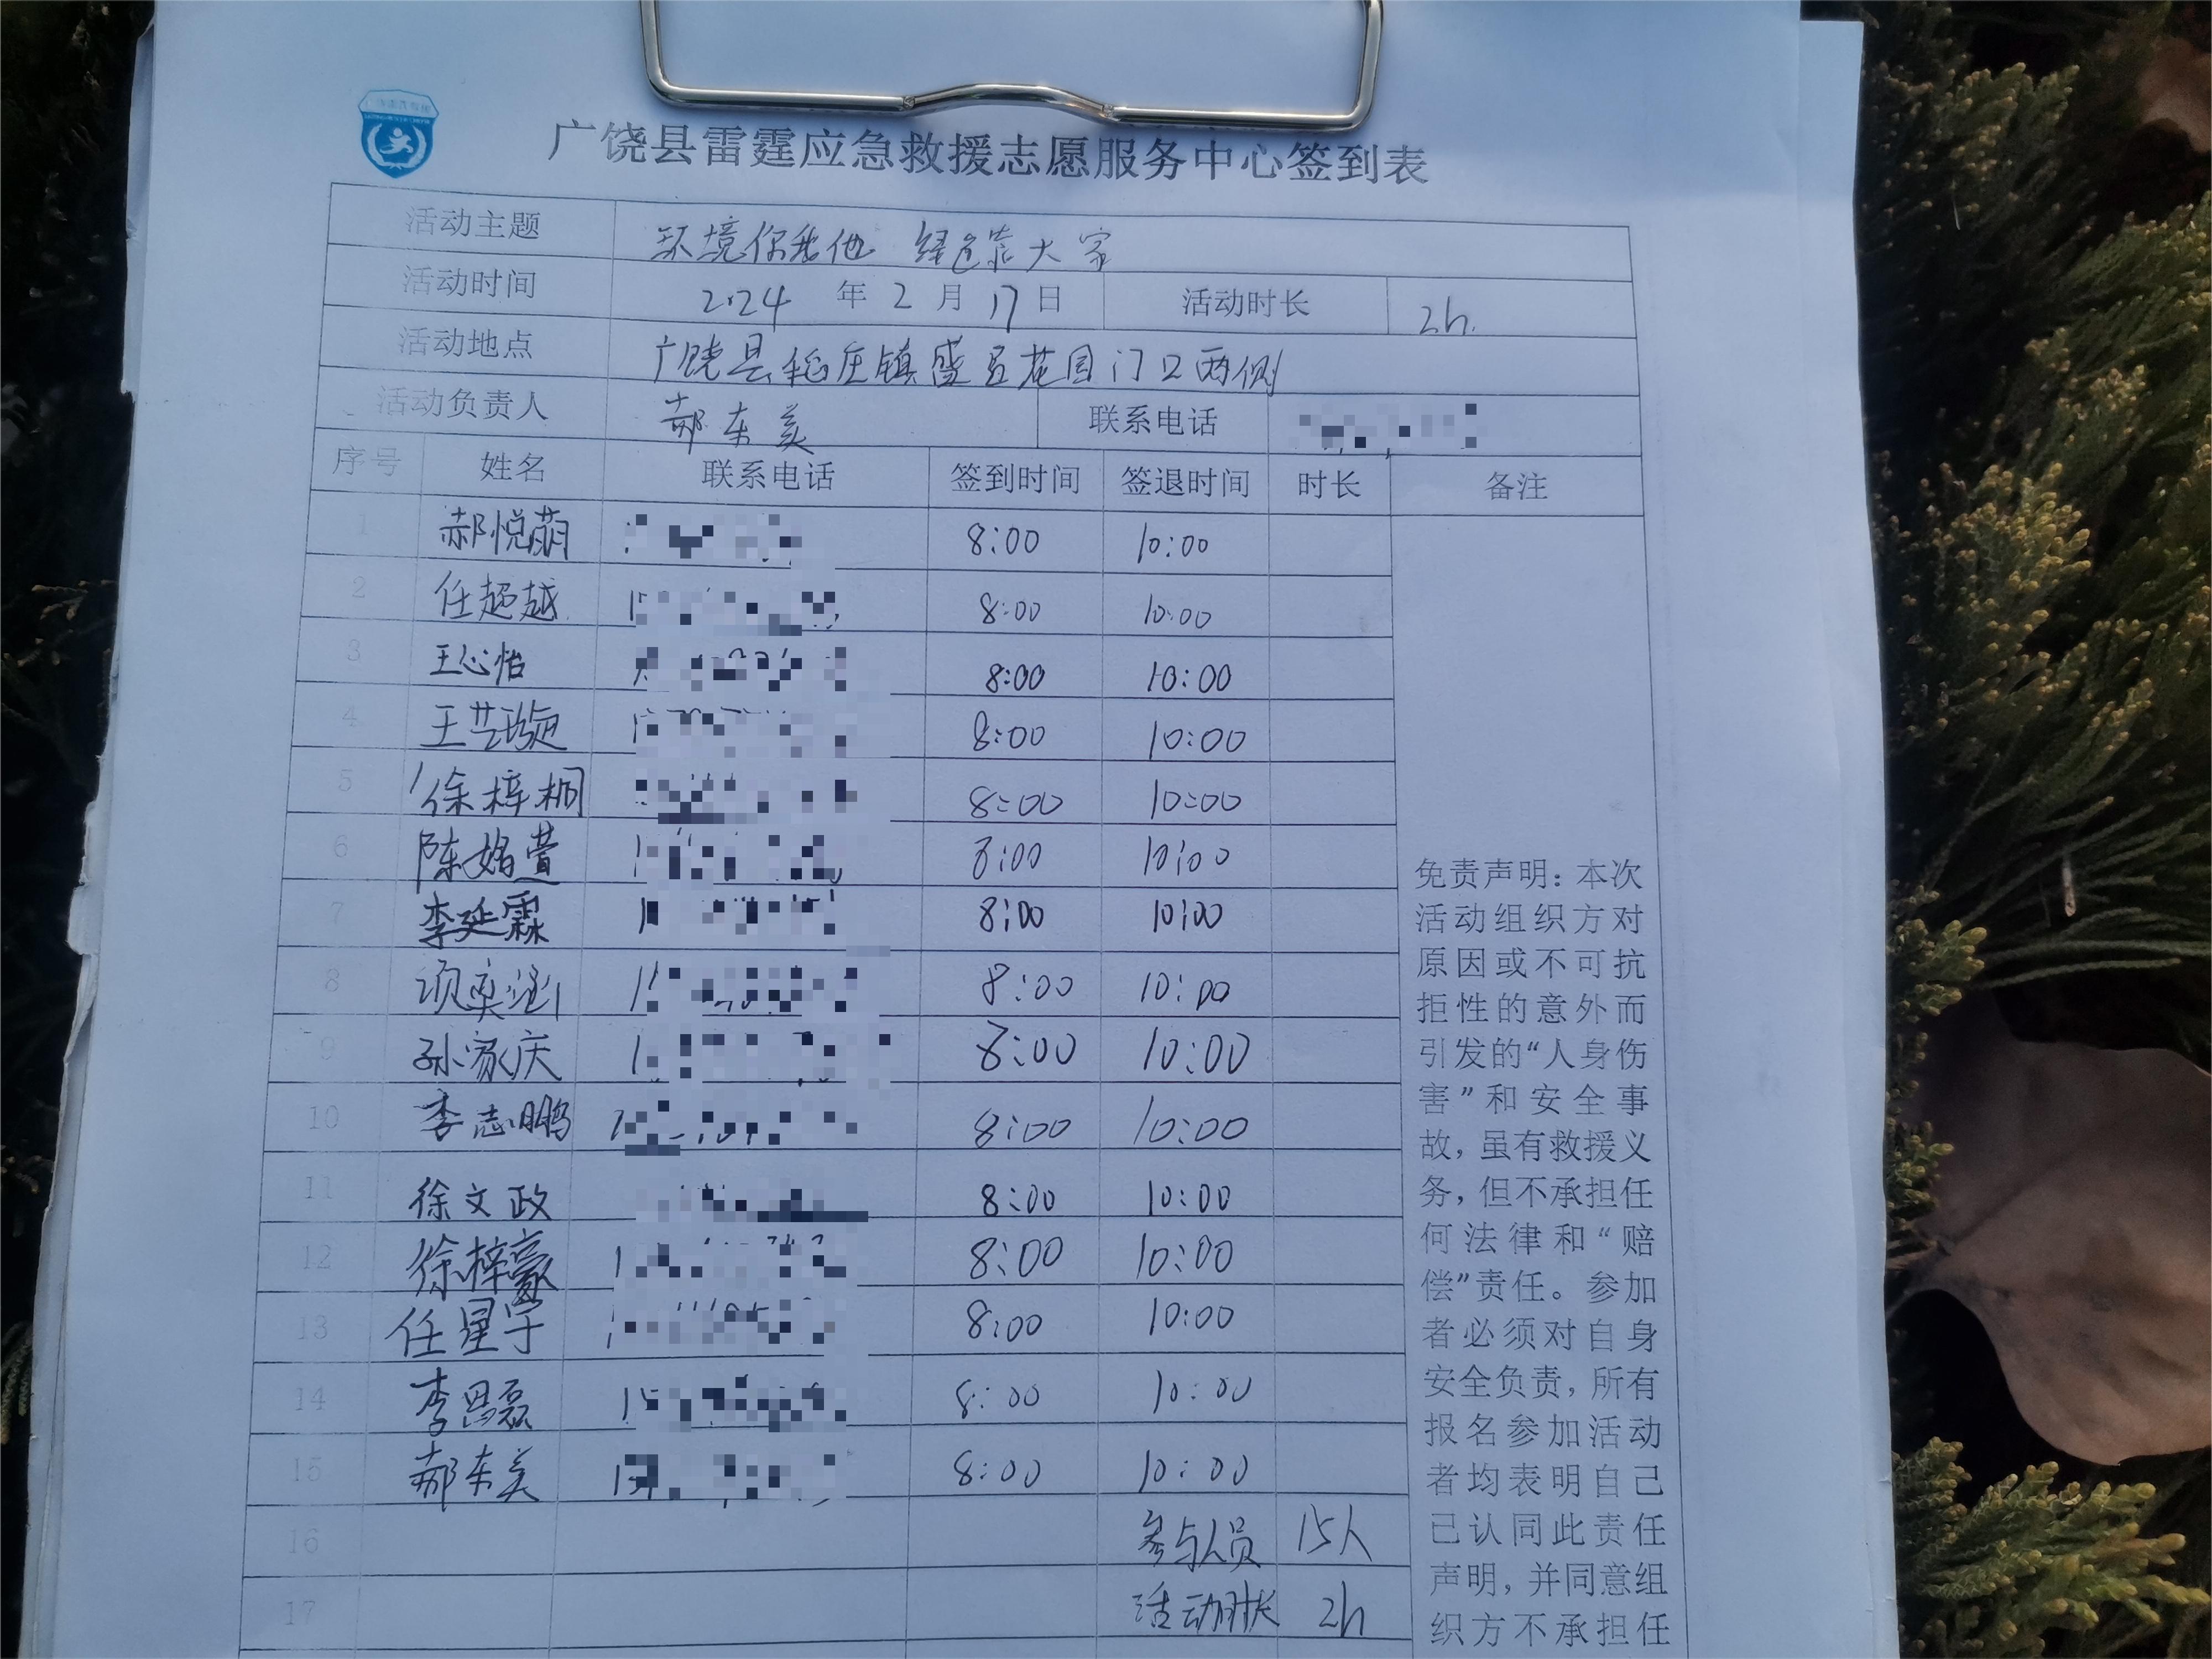 广饶县雷霆应急救援志愿服务中心签到表
活动主题 环境你我他 绿色靠大家
活动时间 2024 年 2 月 17 日 活动时长 2h.
活动地点 广饶县稻庄镇盛昌花园门口两侧
活动负责人 郝东美 联系电话
序号 姓名 联系电话 签到时间 签退时间 时长 备注
1 郝悦萌 8:00 10:00
2 任超越 8:00 10:00
3 王心怡 8:00 10:00
4 王艺璇 8:00 10:00
5 徐梓桐 8:00 10:00
6 陈婼萱 8:00 10:00
7 李延霖 8:00 10:00
8 项奕涵 8:00 10:00
9 孙家庆 8:00 10:00
10 李志鹏 8:00 10:00
11 徐文政 8:00 10:00
12 徐梓豪 8:00 10:00
13 任星宇 8:00 10:00
14 李思磊 8:00 10:00
15 郝东美 8:00 10:00
16 参与人员 15人
17 活动时长 2h
免责声明：本次
活动组织方对
原因或不可抗
拒性的意外而
引发的“人身伤
害”和安全事
故，虽有救援义
务，但不承担任
何法律和“赔
偿”责任。参加
者必须对自身
安全负责，所有
报名参加活动
者均表明自己
已认同此责任
声明，并同意组
织方不承担任